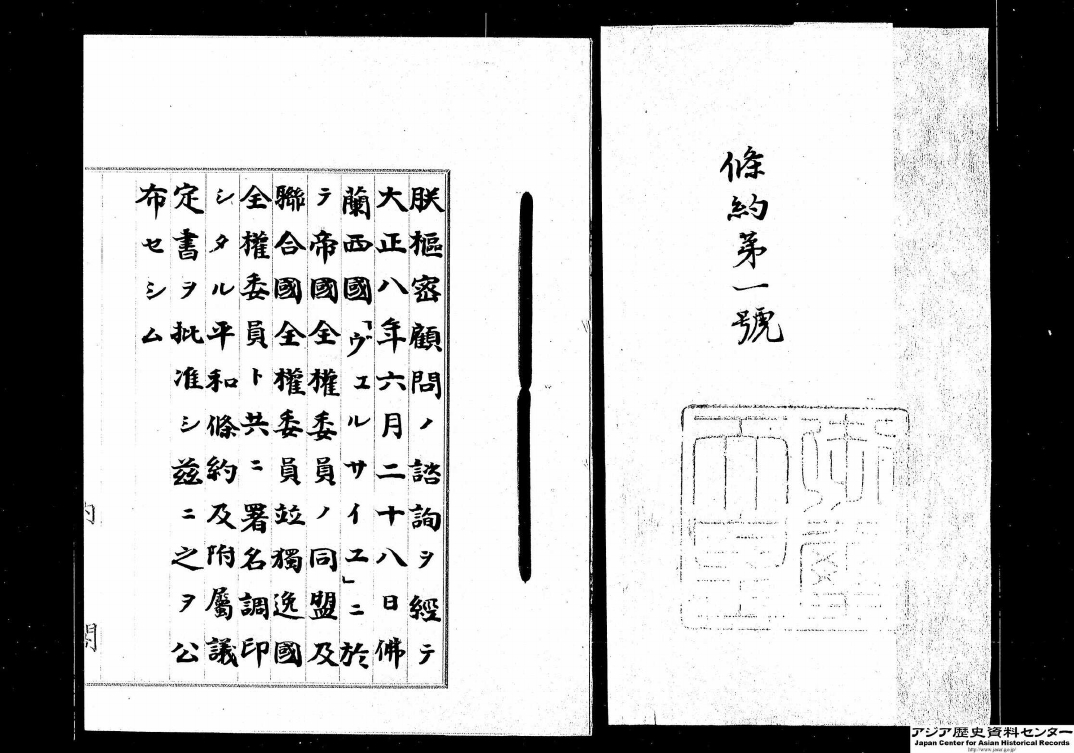 條約第一號
朕樞密顧問ノ諮詢ヲ經テ
大正八年六月二十八日佛
蘭西國「ヴェルサイユ」ニ於
テ帝國全權委員ノ同盟及
聯合國全權委員竝獨逸國
全權委員ト共ニ署名調印
シタル平和條約及附屬議
定書ヲ批准シ茲ニ之ヲ公
布セシム
内閣
アジア歴史資料センター
Japan Center for Asian Historical Records
http://www.jacar.go.jp/